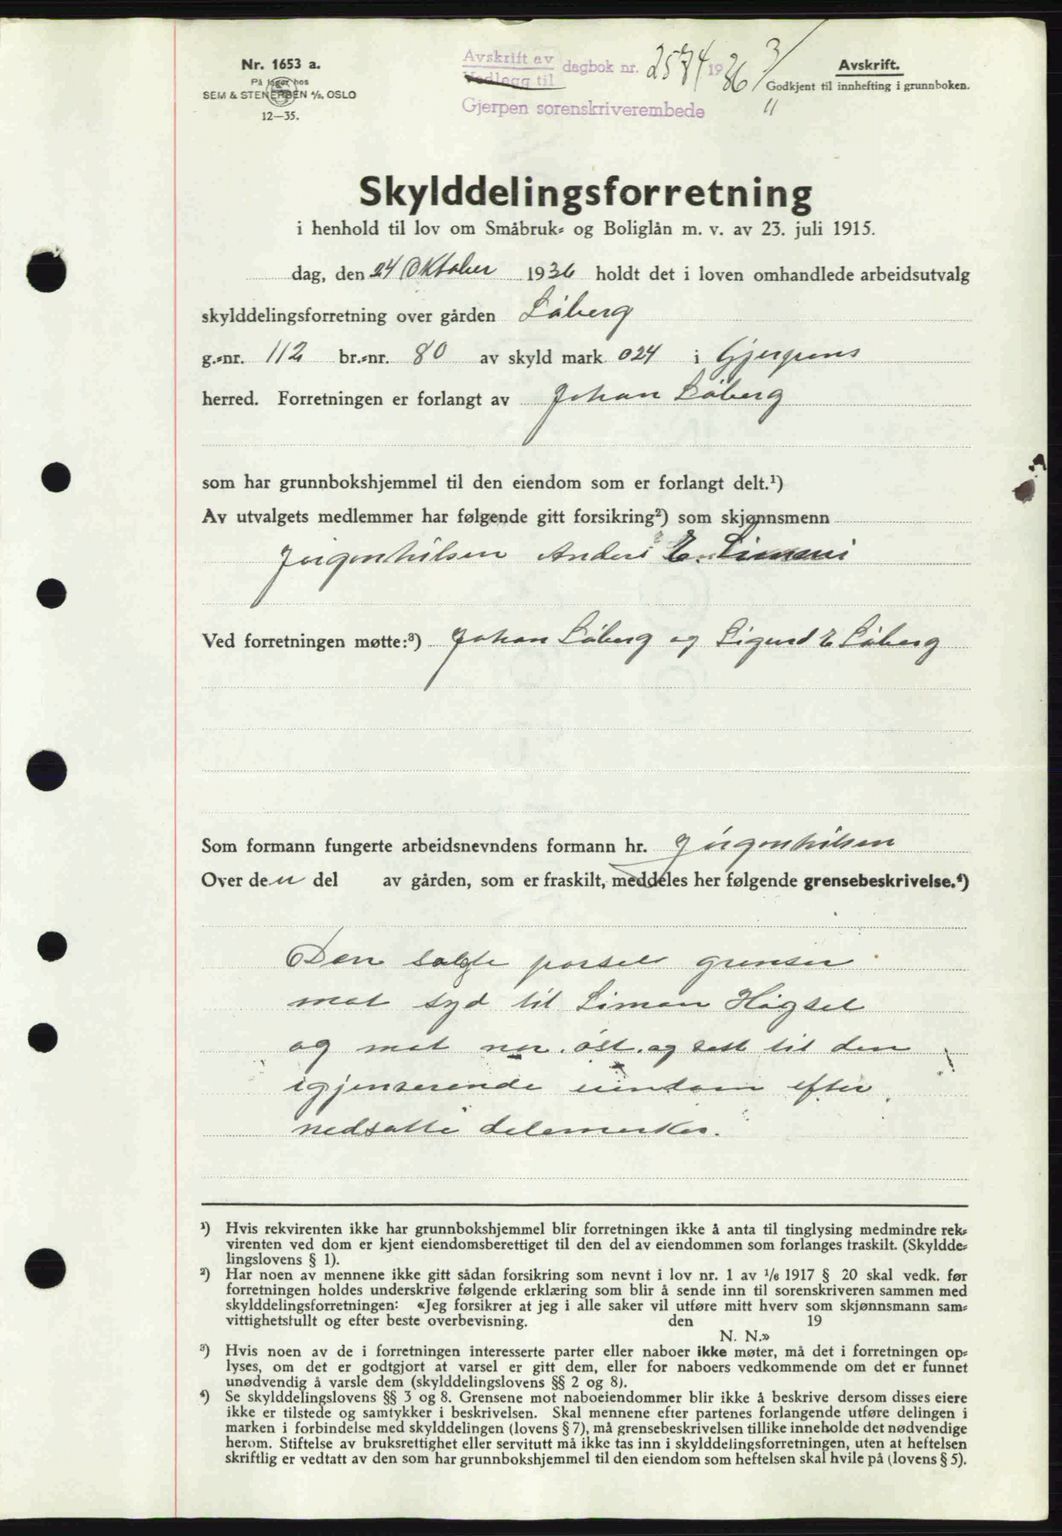 Nr. 1653 a.
På lager hos
SEM & STENERSEN A/S, OSLO
12—35.
Avskrift av
Vedlegg til
dagbok nr. 2574 1936 3/11
Gjerpen sorenskriverembede
Avskrift.
Godkjent til innhefting i grunnboken.
Skylddelingsforretning
i henhold til lov om Småbruk- og Boliglån m. v. av 23. juli 1915.
dag, den 24 Oktober 1936 holdt det i loven omhandlede arbeidsutvalg
skylddelingsforretning over gården Løberg
g.-nr. 112 br.-nr. 80 av skyld mark 024 i Gjerpens
herred. Forretningen er forlangt av Johan Løberg
som har grunnbokshjemmel til den eiendom som er forlangt delt.¹)
Av utvalgets medlemmer har følgende gitt forsikring²) som skjønnsmenn
Jørgen Nilsen Anders E.
Ved forretningen møtte:³) Johan Løberg og Sigurd E Løberg
Som formann fungerte arbeidsnevndens formann hr. Jørgen Nilsen
Over den del av gården, som er fraskilt, meddeles her følgende grensebeskrivelse.⁴)
Den solgte parsel grenser
mot syd til Simon Høgset
og mot nor. øst. og vest til den
igjenværende eiendom efter
nedsatte delemerker.
¹) Hvis rekvirenten ikke har grunnbokshjemmel blir forretningen ikke å anta til tinglysing medmindre rek-
virenten ved dom er kjent eiendomsberettiget til den del av eiendommen som forlanges fraskilt. (Skyldde-
lingslovens § 1).
²) Har noen av mennene ikke gitt sådan forsikring som nevnt i lov nr. 1 av 1/6 1917 § 20 skal vedk. før
forretningen holdes underskrive følgende erklæring som blir å sende inn til sorenskriveren sammen med
skylddelingsforretningen: «Jeg forsikrer at jeg i alle saker vil utføre mitt hverv som skjønnsmann sam-
vittighetsfullt og efter beste overbevisning. den 19
N. N.»
³) Hvis noen av de i forretningen interesserte parter eller naboer ikke møter, må det i forretningen op-
lyses, om det er godtgjort at varsel er gitt dem, eller for naboers vedkommende om det er funnet
unødvendig å varsle dem (skylddelingslovens §§ 2 og 8).
⁴) Se skylddelingslovens §§ 3 og 8. Grensene mot naboeiendommer blir ikke å beskrive dersom disses eiere
ikke er tilstede og samtykker i beskrivelsen. Skal mennene efter partenes forlangende utføre delingen i
marken i forbindelse med skylddelingen (lovens § 7), må grensebeskrivelsen tillike inneholde det nødvendige
herom. Stiftelse av bruksrettighet eller servitutt må ikke tas inn i skylddelingsforretningen, uten at heftelsen
skriftlig er vedtatt av den som har grunnbokshjemmel til den eiendom som heftelsen skal hvile på (lovens § 5).